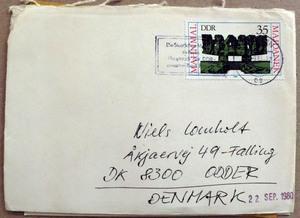 DDR 35
MAHNMAL
MAJDANEK
Niels Lomholt
Åkjaervej 49 - Falling
DK 8300 ODDER
DENMARK
22 SEP. 1980